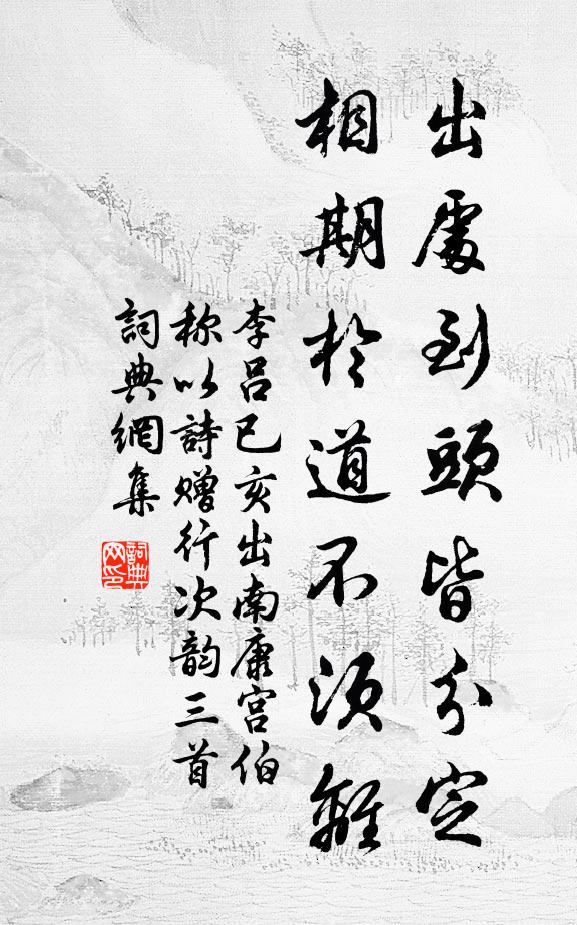 出處到頭皆分定
相期於道不須離
李呂已亥出南康宮伯
称以詩贈行次韵三首
詞典網集
詞典
网印